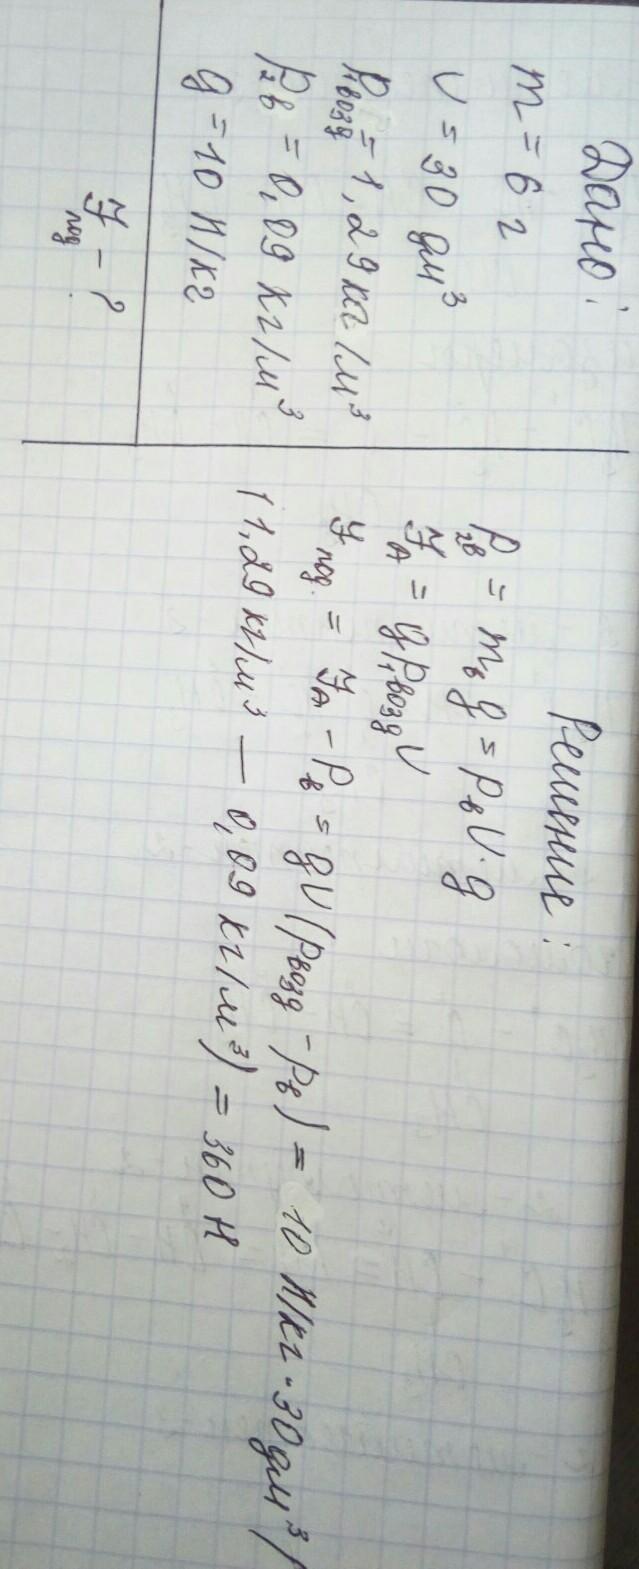 Дано:
m = 6 г
V = 30 дм³
ρ₁возд = 1,29 кг/м³
ρ₂в = 0,09 кг/м³
g = 10 Н/кг
Fпод – ?
Решение:
P₂в = mвg = ρвV·g
FA = gρ₁воздV
Fпод. = FA – Pв = gV(ρвозд – ρв) = 10 Н/кг·30 дм³(
(1,29 кг/м³ — 0,09 кг/м³) = 360 Н